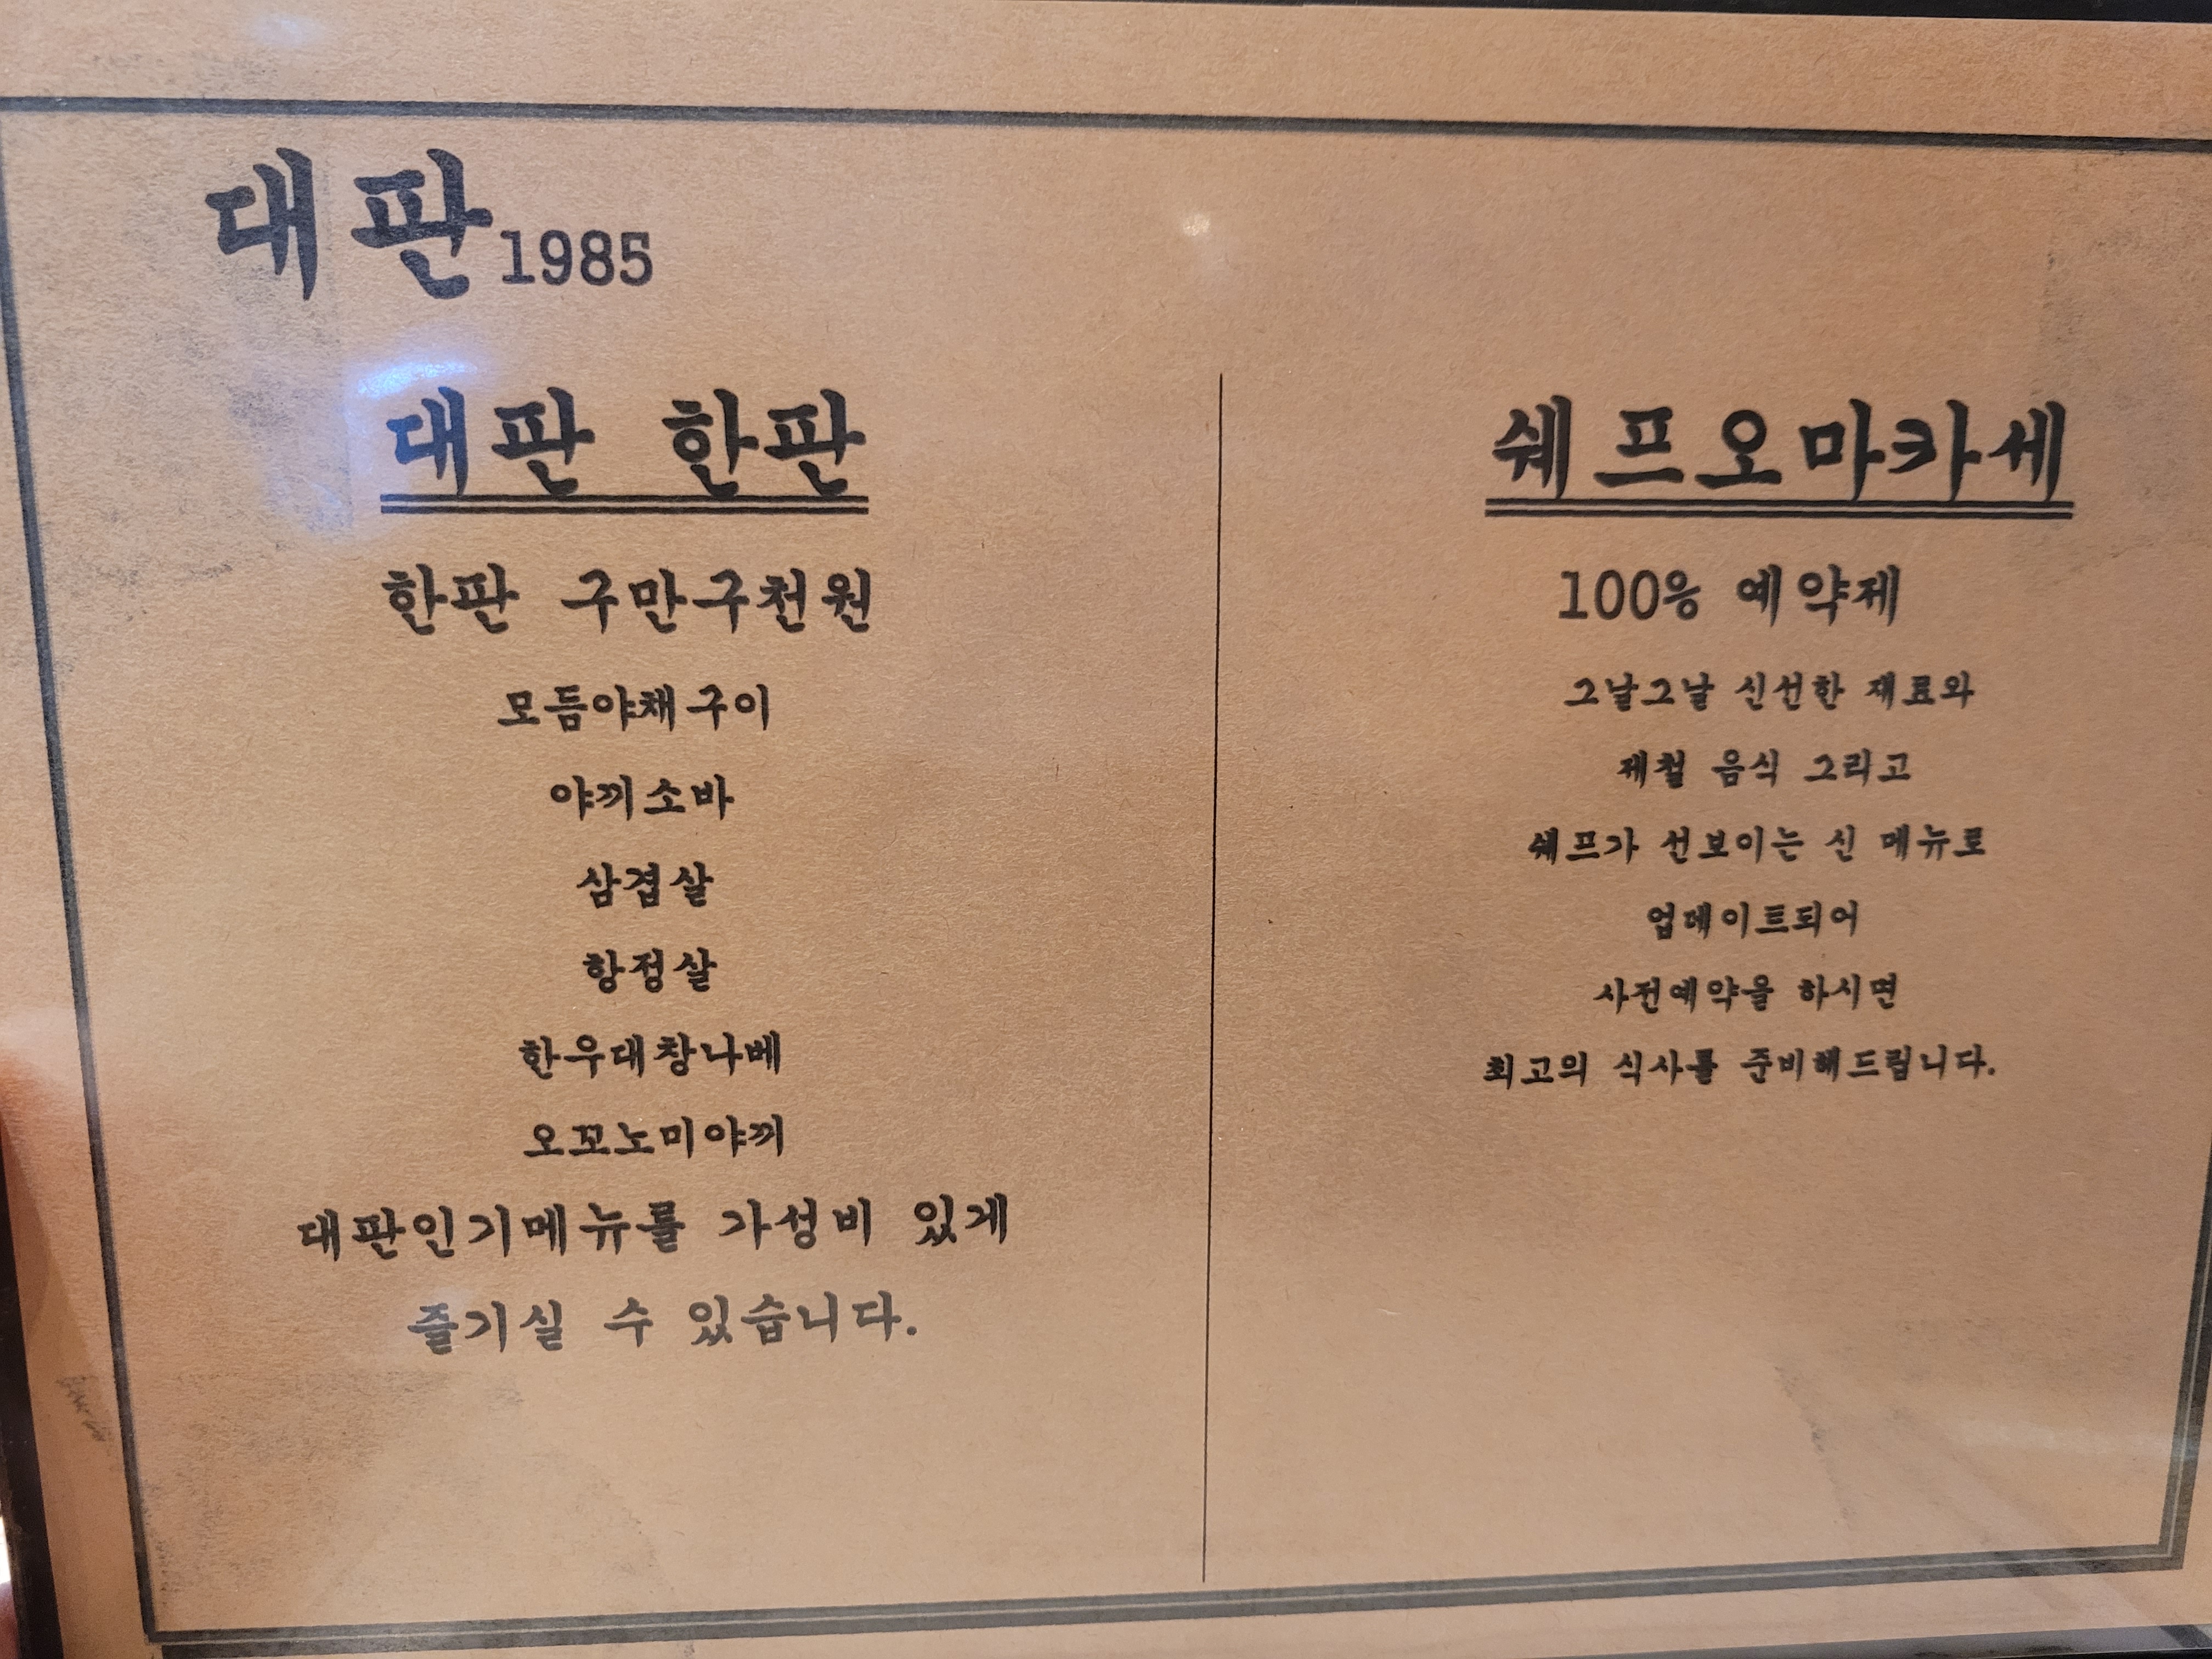 대판 1985
대판 한판
한판 구만구천원
모듬야채구이
야끼소바
삼겹살
항정살
한우대창나베
오꼬노미야끼
대판인기메뉴를 가성비 있게
즐기실 수 있습니다.
쉐프오마카세
100% 예약제
그날그날 신선한 재료와
제철 음식 그리고
쉐프가 선보이는 신 메뉴로
업데이트되어
사전예약을 하시면
최고의 식사를 준비해드립니다.